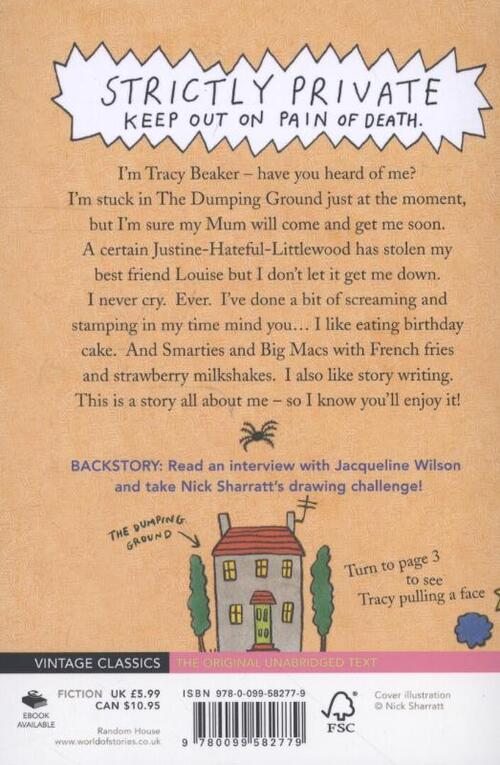 STRICTLY PRIVATE
KEEP OUT ON PAIN OF DEATH.
I'm Tracy Beaker – have you heard of me?
I'm stuck in The Dumping Ground just at the moment,
but I'm sure my Mum will come and get me soon.
A certain Justine-Hateful-Littlewood has stolen my
best friend Louise but I don't let it get me down.
I never cry. Ever. I've done a bit of screaming and
stamping in my time mind you... I like eating birthday
cake. And Smarties and Big Macs with French fries
and strawberry milkshakes. I also like story writing.
This is a story all about me – so I know you'll enjoy it!
BACKSTORY: Read an interview with Jacqueline Wilson
and take Nick Sharratt's drawing challenge!
THE DUMPING
GROUND
Turn to page 3
to see
Tracy pulling a face
VINTAGE CLASSICS THE ORIGINAL UNABRIDGED TEXT
EBOOK
AVAILABLE
FICTION UK £5.99
CAN $10.95
Random House
www.worldofstories.co.uk
ISBN 978-0-099-58277-9
9 780099 582779
FSC
Cover illustration
© Nick Sharratt